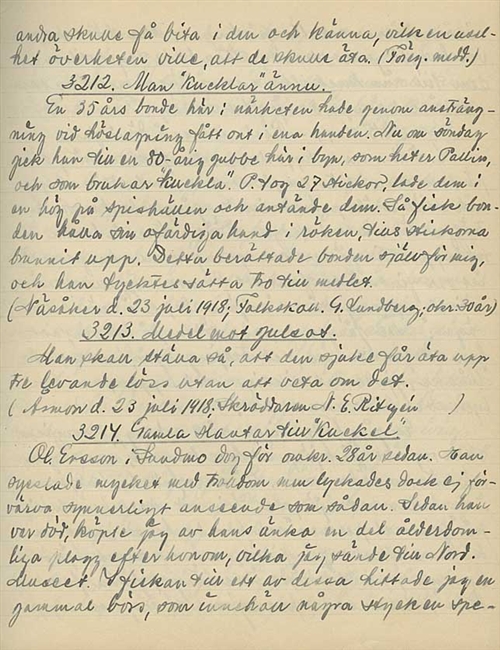 andra skulle få bita i den och känna, vilken usel-
het överheten ville, att de skulle äta. (Föreg. medd.)
3212. Man "kucklar" ännu.
En 35 års bonde här i närheten hade genom ansträng-
ning vid höslagning fått ont i ena handen. Nu om söndag
gick han till en 80-årig gubbe här i byn, som heter Pallin,
och som brukar "kuckla". P. tog 27 stickor, lade dem i
en hög på spishällen och antände dem. Så fick bon-
den hålla sin ofärdiga hand i röken, tills stickorna
brunnit upp. Detta berättade bonden själv för mig,
och han tycktes sätta tro till medlet.
(Näsåker d. 23 juli 1918, Folkskoll. G. Lundberg, okr. 30 år)
3213. Medel mot gulsot.
Man skall ställa så, att den sjuke får äta upp
tre levande löss utan att veta om det.
(Åmon d. 23 juli 1918. Skräddaren N. E.)
3214. Gamla slantar till "kuckel"
Ol. Ersson i Sundmo dog för omkr. 28 år sedan. Han
sysslade mycket med trolldom men lyckades dock ej för-
värva synnerligt anseende som sådan. Sedan han
var död, köpte jag av hans änka en del ålderdom-
liga plagg efter honom, vilka jag sände till Nord.
Museet. I fickan till ett av dessa hittade jag en
gammal börs, som innehöll några stycken spe-